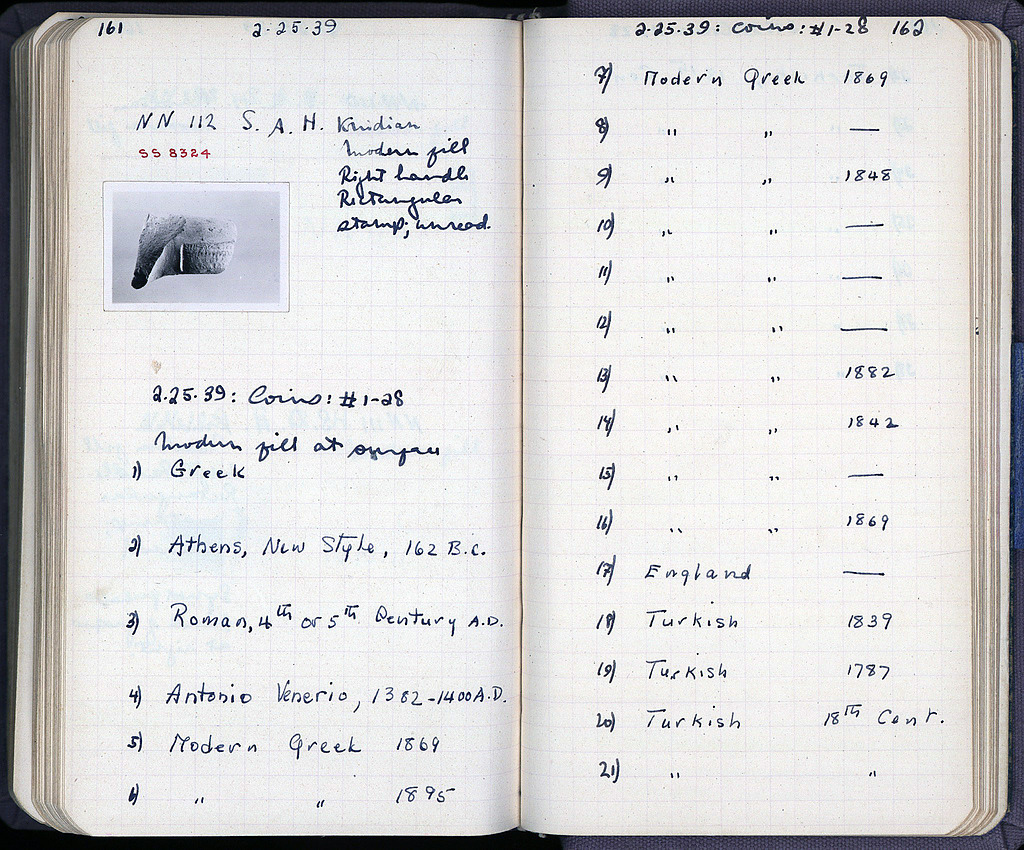 161
2·25·39
NN 112 S. A. H. Knidian
SS 8324
Modern fill
Right handle
Rectangular
stamp; unread.
2·25·39: Coins: #1-28
Modern fill at surface
1) Greek
2) Athens, New Style, 162 B.C.
3) Roman, 4th or 5th Century A.D.
4) Antonio Venerio, 1382-1400 A.D.
5) Modern Greek 1869
6) " " 1895
2·25·39: Coins: #1-28 162
7) Modern Greek 1869
8) " " —
9) " " 1848
10) " " —
11) " " —
12) " " —
13) " " 1882
14) " " 1842
15) " " —
16) " " 1869
17) England —
18) Turkish 1839
19) Turkish 1787
20) Turkish 18th Cent.
21) " "